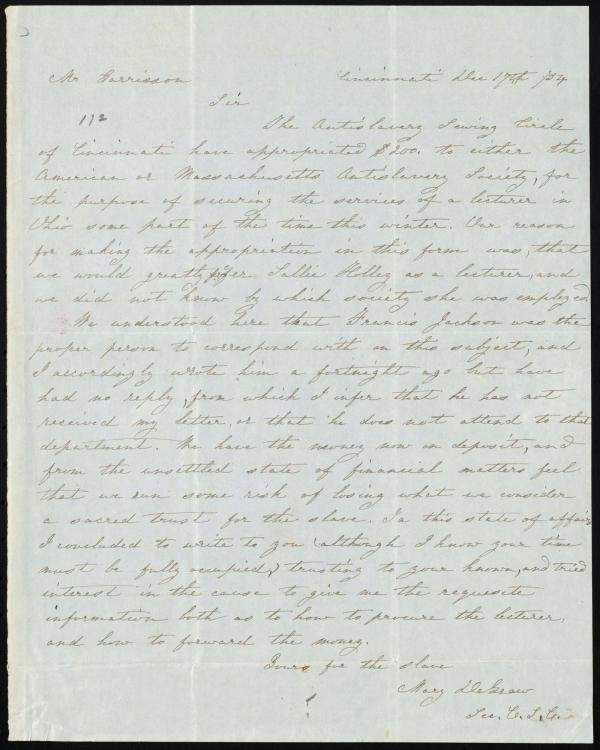 Mr Garrisson Cincinnati Dec 17th /54
Sir
112
The Antislavery Sewing Circle
of Cincinnati have appropriated $200. to either the
American or Massachusetts Antislavery Society, for
the purpose of securing the services of a lecturer in
Ohio some part of the time this winter. Our reason
for making the appropriation in this form was, that
we would greatly prefer Sallie Holley as a lecturer, and
we did not know by which society she was employed
We understood here that Francis Jackson was the
proper person to correspond with on this subject, and
I accordingly wrote him a fortnight ago but have
had no reply, from which I infer that he has not
received my letter, or that he does not attend to that
department. We have the money now on deposit, and
from the unsettled state of financial matters feel
that we run some risk of losing what we consider
a sacred trust for the slave. In this state of affairs
I concluded to write to you (although I know your time
must be fully occupied,) trusting to your known, and tried
interest in the cause to give me the requesite
information both as to how to procure the lecturer,
and how to forward the money.
Yours for the slave
Mary DeGraw
Sec. C. S. C.